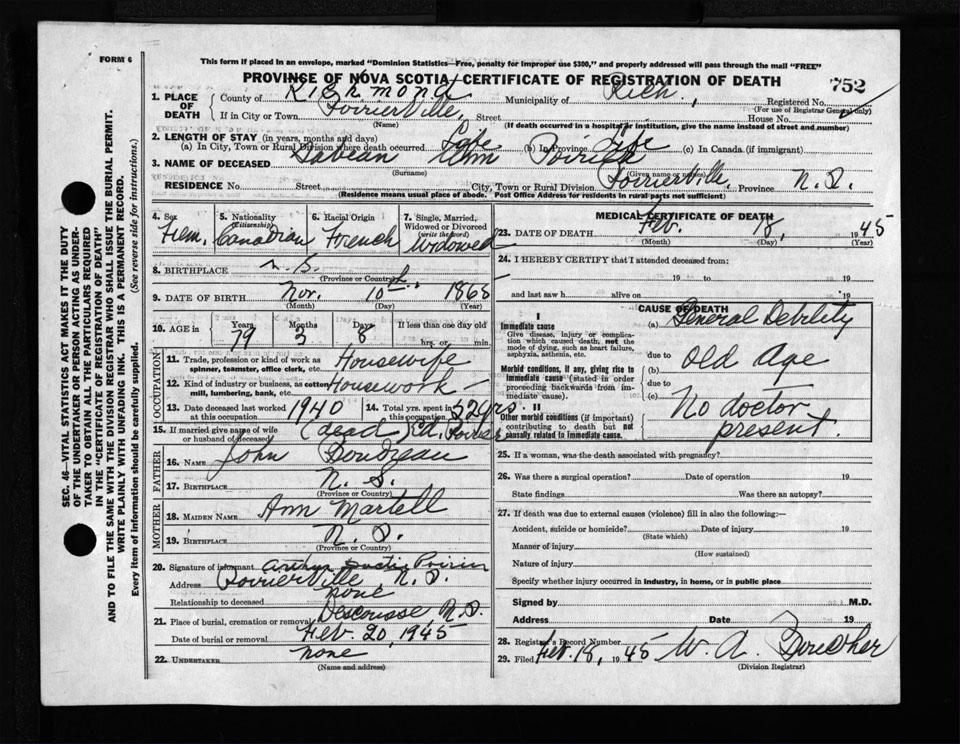 This form if placed in an envelope, marked "Dominion Statistics—Free, penalty for improper use $300," and properly addressed will pass through the mail "FREE"
FORM 6
PROVINCE OF NOVA SCOTIA—CERTIFICATE OF REGISTRATION OF DEATH
752
1. PLACE OF DEATH
County of Richmond Municipality of Rich. Registered No.
(For use of Registrar General only)
If in City or Town Poirierville, Street House No.
(Name) (If death occurred in a hospital or institution, give the name instead of street and number)
2. LENGTH OF STAY (in years, months and days)
(a) In City, Town or Rural Division where death occurred Life (b) In Province Life (c) In Canada (if immigrant)
3. NAME OF DECEASED Sabean Ann Poirier
(Surname) (Given name or names)
RESIDENCE No. Street City, Town or Rural Division Poirierville, Province N.S.
(Residence means usual place of abode. Post Office Address for residents in rural parts not sufficient)
4. Sex Fem.
5. Nationality (Citizenship) Canadian
6. Racial Origin French
7. Single, Married, Widowed or Divorced (write the word) Widowed
8. BIRTHPLACE N.S.
(Province or Country)
9. DATE OF BIRTH Nov. 10th 1865
(Month) (Day) (Year)
10. AGE in Years 79 Months 3 Days 8 If less than one day old
hrs. or min.
OCCUPATION
11. Trade, profession or kind of work as spinner, teamster, office clerk, etc. Housewife
12. Kind of industry or business, as cotton mill, lumbering, bank, etc. Housework —
13. Date deceased last worked at this occupation 1940
14. Total yrs. spent in this occupation 52 yrs.
15. If married give name of wife or husband of deceased (dead) Ed. Poirier
FATHER
16. NAME John Boudreau
17. BIRTHPLACE N.S.
(Province or Country)
MOTHER
18. MAIDEN NAME Ann Martell
19. BIRTHPLACE N.S.
(Province or Country)
20. Signature of informant Arthur Poirier
Address Poirierville, N.S.
Relationship to deceased none
21. Place of burial, cremation or removal Descousse, N.S.
Date of burial or removal Feb. 20, 1945
22. UNDERTAKER none
(Name and address)
MEDICAL CERTIFICATE OF DEATH
23. DATE OF DEATH Feb. 18, 1945
(Month) (Day) (Year)
24. I HEREBY CERTIFY that I attended deceased from:
19 to 19
and last saw h alive on 19
CAUSE OF DEATH
I
Immediate cause
Give disease, injury or complication which caused death, not the mode of dying, such as heart failure, asphyxia, asthenia, etc.
(a) General Debility
due to
Morbid conditions, if any, giving rise to immediate cause (stated in order proceeding backwards from immediate cause).
(b) Old Age
due to
(c) No doctor present.
II
Other morbid conditions (if important) contributing to death but not causally related to immediate cause.
25. If a woman, was the death associated with pregnancy?
26. Was there a surgical operation? Date of operation 19
State findings Was there an autopsy?
27. If death was due to external causes (violence) fill in also the following:—
Accident, suicide or homicide? Date of injury 19
(State which)
Manner of injury
(How sustained)
Nature of injury
Specify whether injury occurred in industry, in home, or in public place
Signed by M.D.
Address Date 19
28. Registrar's Record Number
29. Filed Feb. 18, 1945 W. A.
(Division Registrar)
SEC. 46—VITAL STATISTICS ACT MAKES IT THE DUTY
OF THE UNDERTAKER OR PERSON ACTING AS UNDER-
TAKER TO OBTAIN ALL THE PARTICULARS REQUIRED
IN THE "CERTIFICATE OF REGISTRATION OF DEATH"
AND TO FILE THE SAME WITH THE DIVISION REGISTRAR WHO SHALL ISSUE THE BURIAL PERMIT.
WRITE PLAINLY WITH UNFADING INK. THIS IS A PERMANENT RECORD.
Every item of information should be carefully supplied. (See reverse side for instructions.)